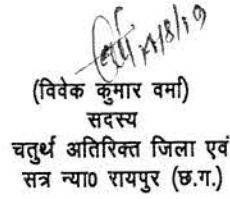 (विवेक कुमार वर्मा)
सदस्य
चतुर्थ अतिरिक्त जिला एवं
सत्र न्या0 रायपुर (छ.ग.)